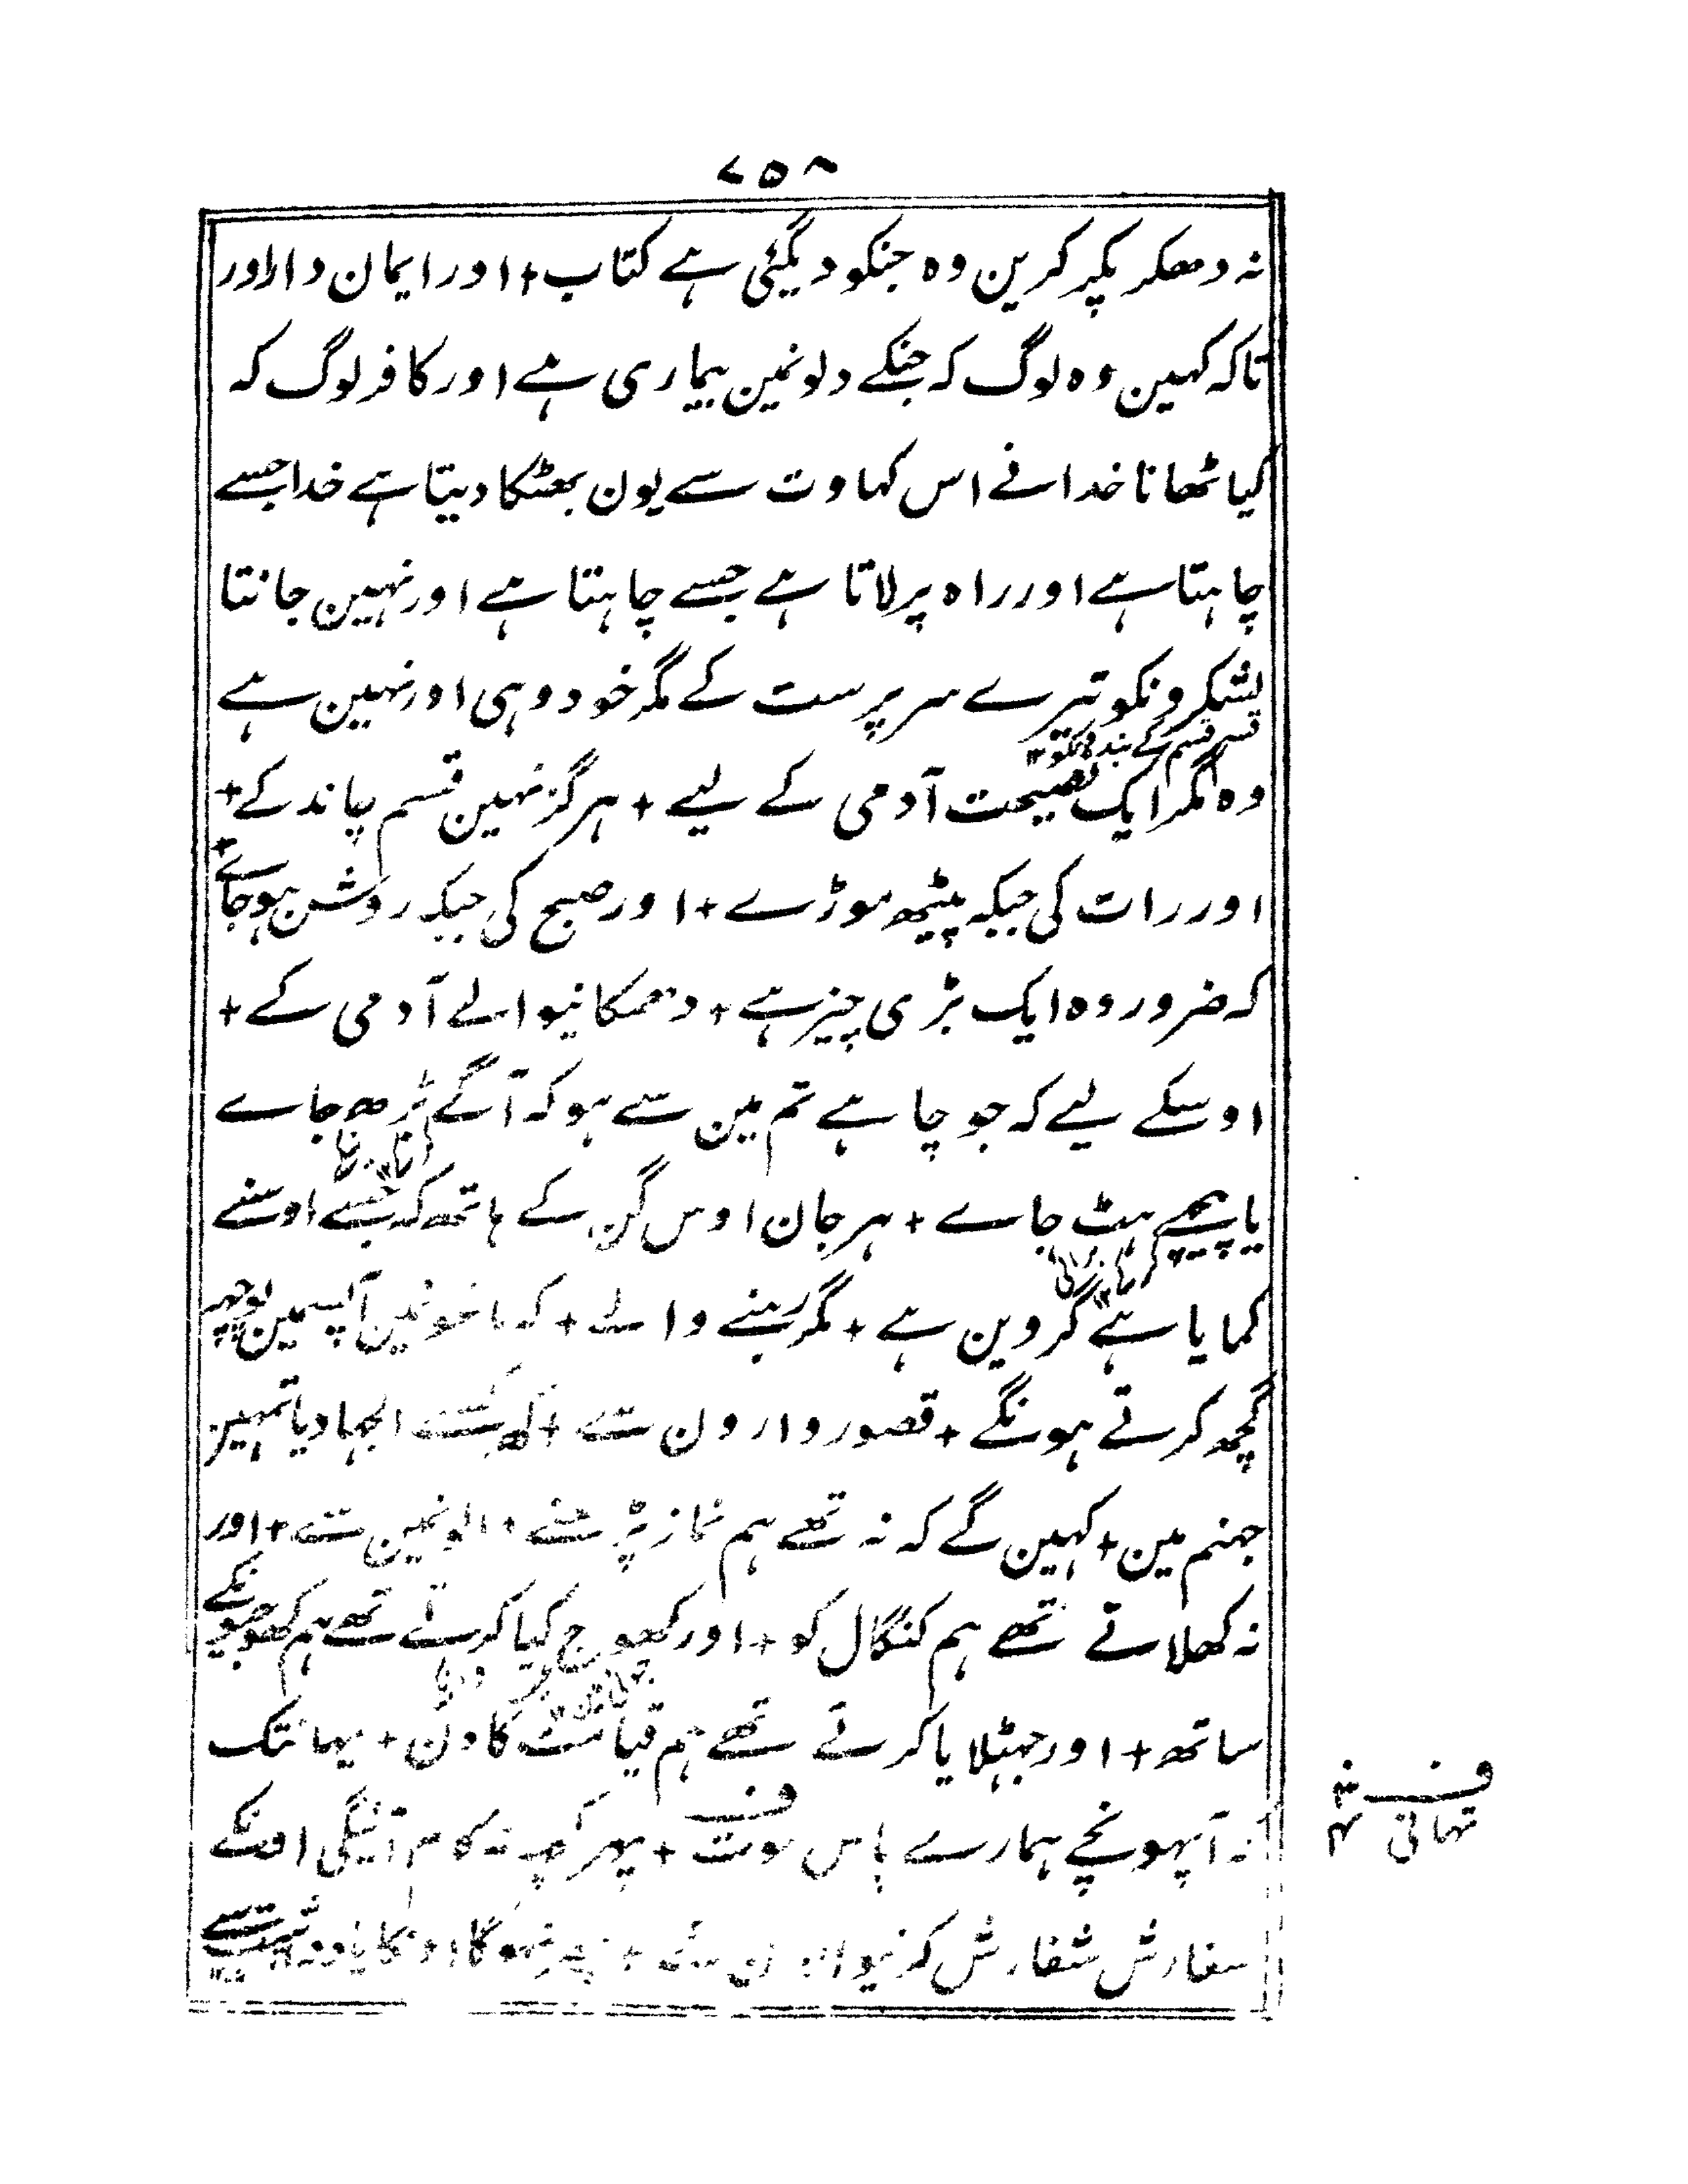 ۷۵۸
نہ دھکر پکر کرین وہ جنکو دیگئی ہے کتاب + اور ایمان دار اور
تاکہ کہین وہ لوگ کہ جنکے دلونمین بیماری ہے اور کافر لوگ کہ
کیا ٹھانا خدا نے اس کہاوت سے یون بھٹکا دیتا ہے خدا جسے
چاہتا ہے اور راہ پر لاتا ہے جسے چاہتا ہے اور نہین جانتا
لشکرونکو تیرے سرپرست کے مگر خود وہی اور نہین ہے
قسم قسم کے بندونکو
وہ مگر ایک نصیحت آدمی کے لیے + ہرگز نہین قسم چاند کے +
اور رات کی جبکہ پیٹھ موڑے + اور صبح کی جبکہ روشن ہو جائے +
کہ ضرور وہ ایک بڑی چیز ہے + دھمکانیوالے آدمی کے +
اوسکے لیے کہ جو چاہے تم مین سے ہو کہ آگے بڑھ جاے
یا پیچھے ہٹ جاے + ہر جان اوس گن کے ہاتھ کہ جسے اوسنے
کمایا ہے گروین ہے + مگر دہنے والے + کہ باغونمین آپسمین پوچھ
گچھ کرتے ہونگے + قصوروارون سے + کہ کسنے الجھا دیا تمہین
جہنم مین + کہین گے کہ نہ تھے ہم نماز پڑھنے والونمین سے + اور
نہ کھلاتے تھے ہم کنگال کو + اور کھوج کیا کرتے تھے ہم کھوجیونکے
ساتھ + اور جھٹلایا کرتے تھے ہم قیامت کا دن + یہانتک
کہ آپہونچے ہمارے پاس موت + پھر کچھ نہ کام آئیگی اونکے
سفارش شفارش کرنیوالون سے +
ف
تہائی